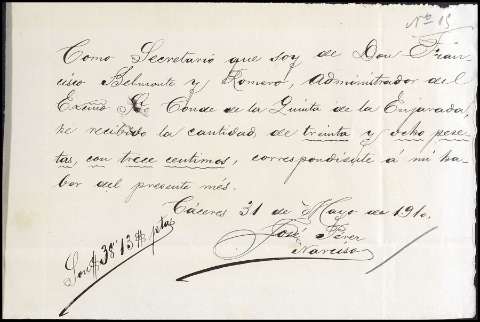 Nº 15
Como Secretario que soy de Don Fran-
cisco Belmonte y Romero, administrador del
Excmo Sr Conde de la Quinta de la Enjarada,
he recibido la cantidad de treinta y ocho pese-
tas, con trece centimos, correspondiente á mi ha-
ber del presente més.
Cáceres 31 de Mayo de 1910.
José Pérez
Narciso
Son # 38'13 # ptas